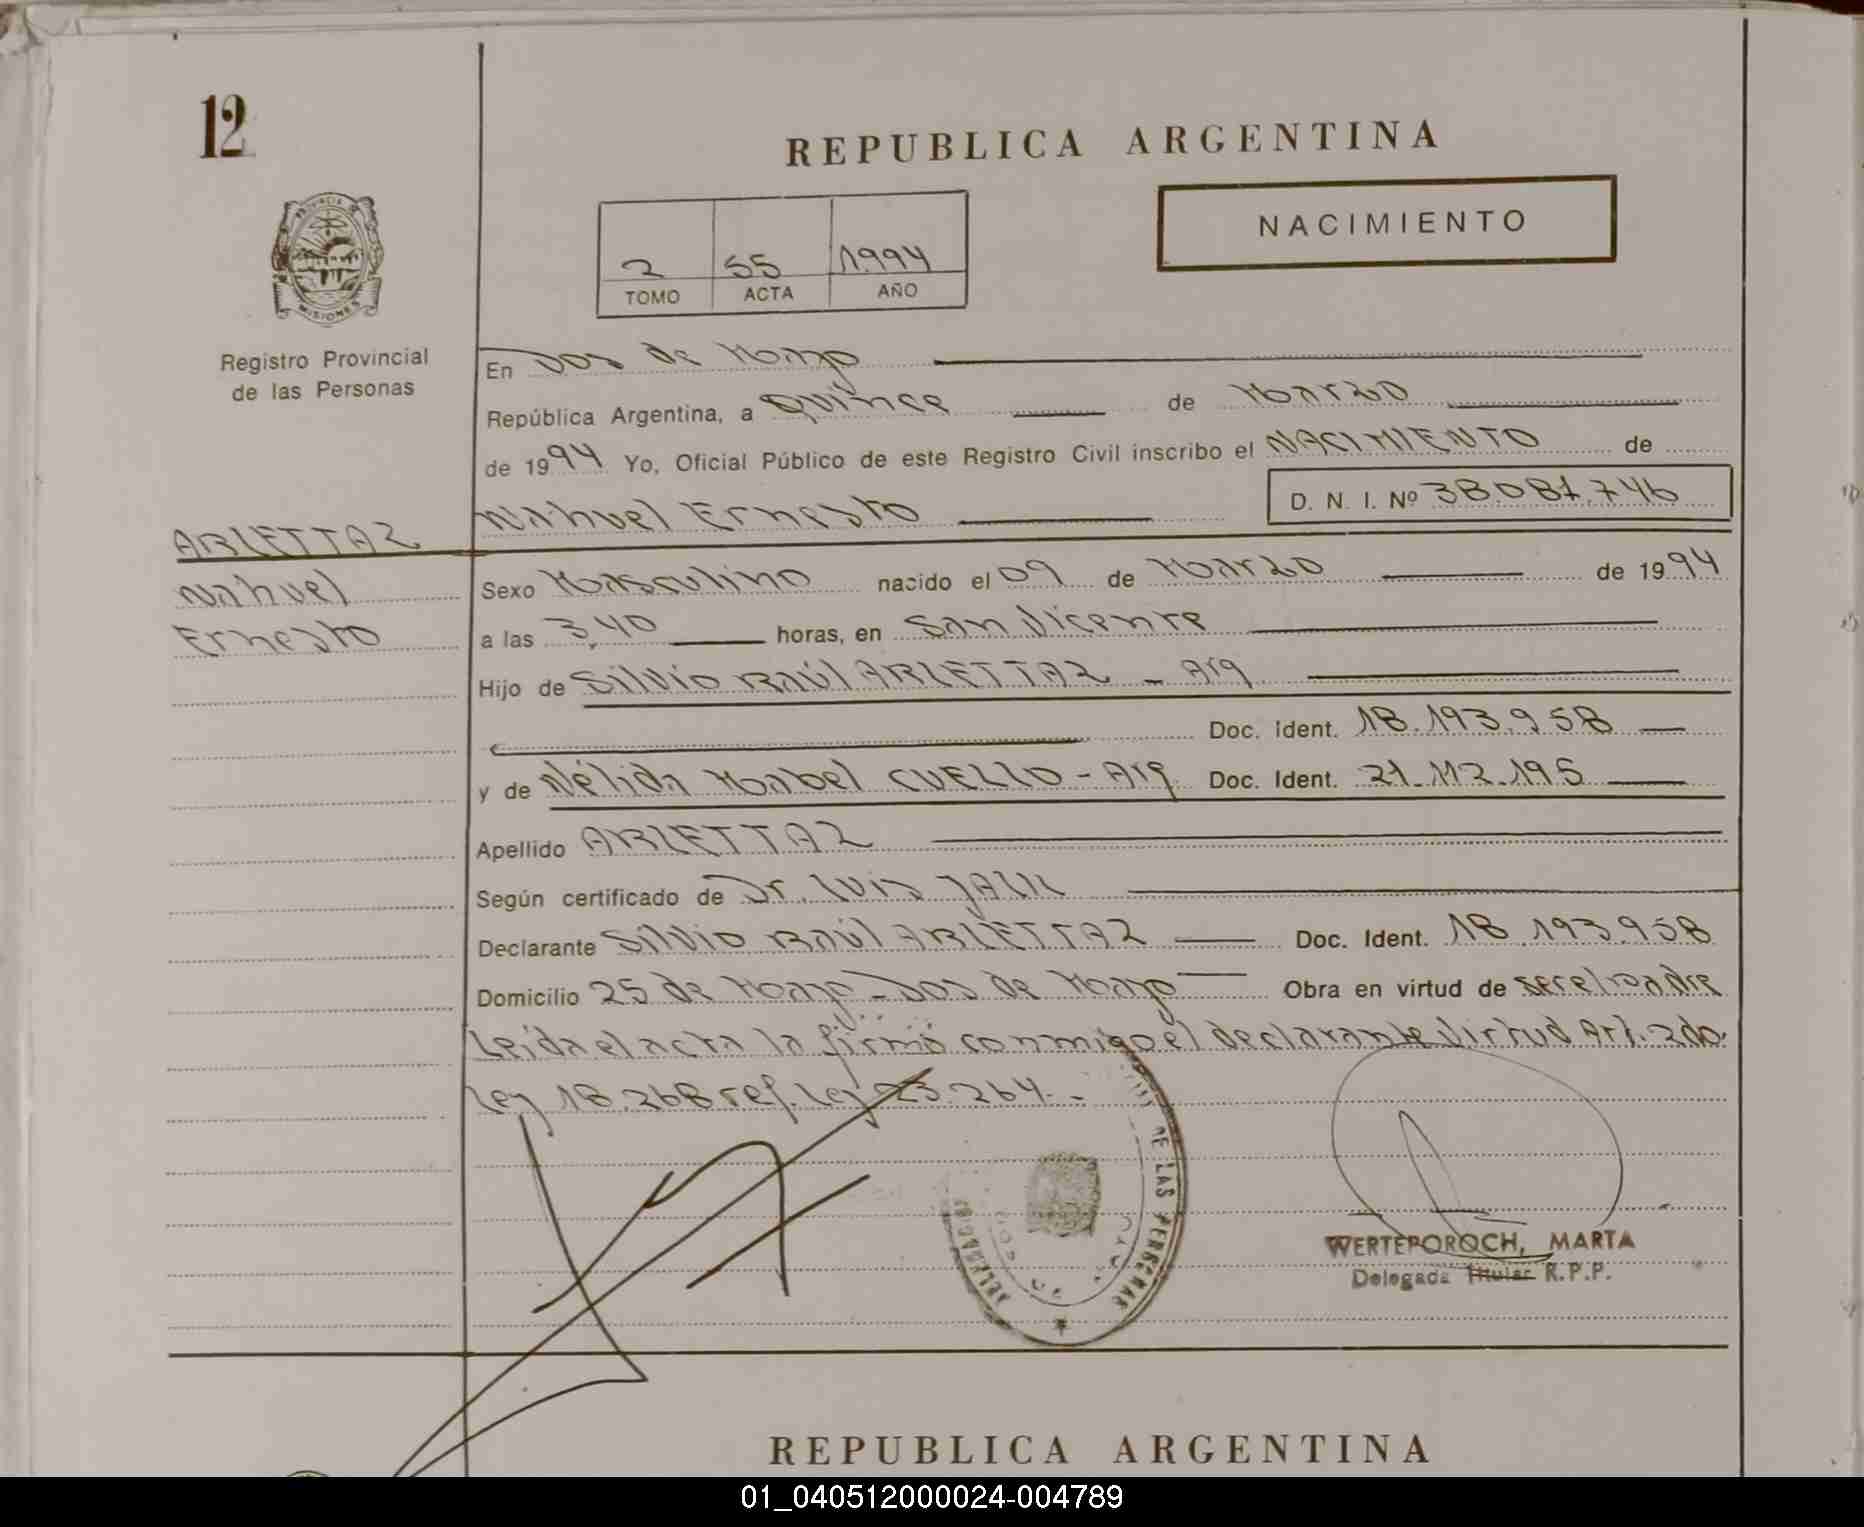 12
REPUBLICA ARGENTINA
NACIMIENTO
2 55 1994
TOMO ACTA AÑO
PROVINCIA DE
MISIONES
Registro Provincial
de las Personas
En Dos de Mayo
República Argentina, a Quince de Marzo
de 1994 Yo, Oficial Público de este Registro Civil inscribo el NACIMIENTO de
Nahuel Ernesto D. N. I. Nº 38.081.746
ARLETTAZ
Nahuel
Ernesto
Sexo Masculino nacido el 09 de Marzo de 1994
a las 3,40 horas, en San Vicente
Hijo de Silvio Raúl ARLETTAZ - Arg
Doc. Ident. 18.193.958
y de Nélida Mabel CUELLO - Arg Doc. Ident. 21.112.195
Apellido ARLETTAZ
Según certificado de Dr. Luis JALIL
Declarante Silvio Raúl ARLETTAZ Doc. Ident. 18.193.958
Domicilio 25 de Mayo - Dos de Mayo Obra en virtud de ser el padre
Leída el acta la firmó conmigo el declarante Virtud Art. 2do.
Ley 18.268 ref. Ley 23.264.-
DE LAS PERSONAS
DELEGACION
WERTEPOROCH, MARTA
Delegada Titular R.P.P.
REPUBLICA ARGENTINA
01_040512000024-004789